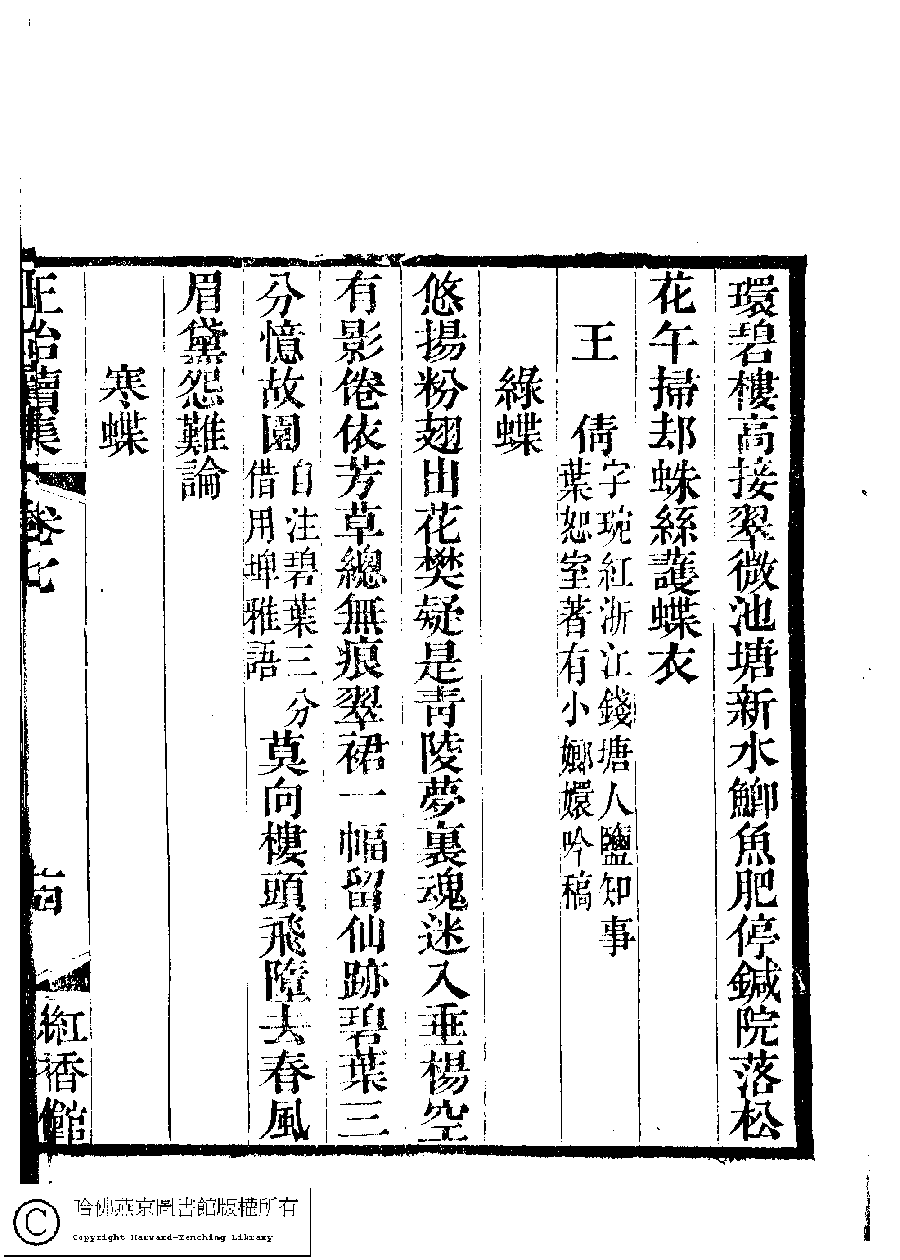 環碧樓高接翠微池塘新水鯽魚肥停鍼院落松
花午掃却蛛絲護蝶衣
王 倩
字琬紅浙江錢塘人鹽知事
葉恕室著有小嫏嬛吟稿
綠蝶
悠揚粉翅出花樊疑是靑陵夢裏魂迷入垂楊空
有影倦依芳草總無痕翠裙一幅留仙跡碧葉三
分憶故園
自注碧葉三分
借用埤雅語
莫向樓頭飛墮去春風
眉黛怨難論
寒蝶
正始續集 卷七 十四 紅香館
哈佛燕京圖書館版權所有
Copyright Harvard-Yenching Library